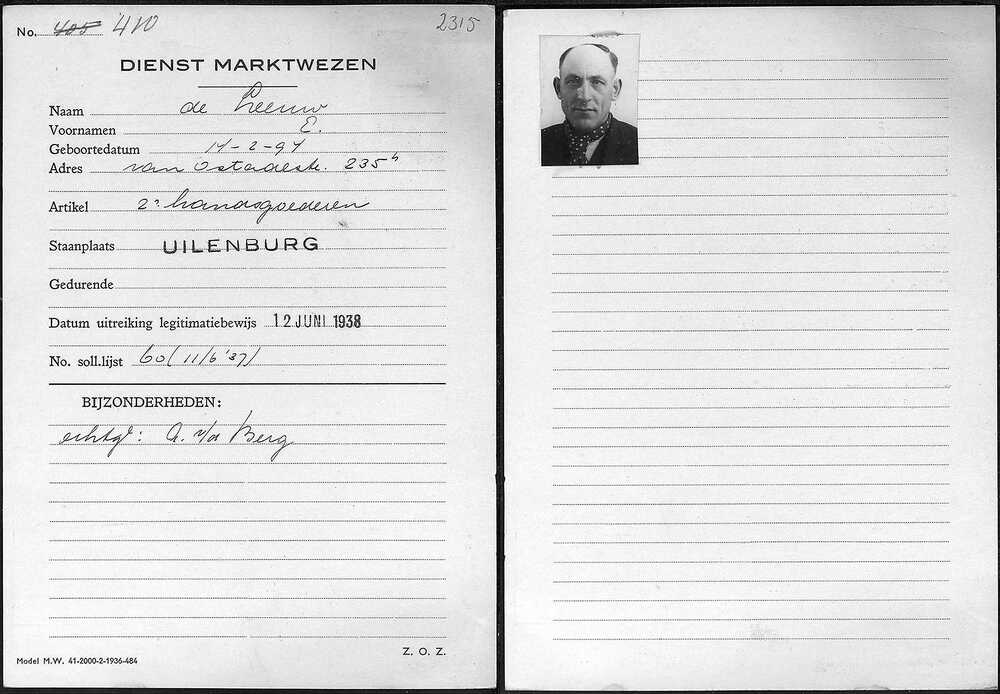 No. 405 410 2315
DIENST MARKTWEZEN
Naam de Leeuw
Voornamen E.
Geboortedatum 14-2-94
Adres van Ostadestr. 235 h
Artikel 2e handsgoederen
Staanplaats UILENBURG
Gedurende
Datum uitreiking legitimatiebewijs 12 JUNI 1938
No. soll.lijst 60 (11/6 '37)
BIJZONDERHEDEN:
echtgt: A. v/d Berg
Z. O. Z.
Model M.W. 41-2000-2-1936-484